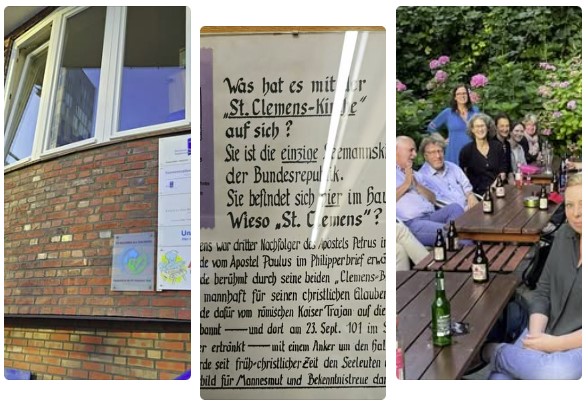 Was hat es mit der
„St. Clemens-Kirche“
auf sich?
Sie ist die einzige Seemannsk
der Bundesrepublik.
Sie befindet sich hier im Hau
Wieso „St. Clemens“?
ens war dritter Nachfolger des Apostels Petrus in
de vom Apostel Paulus im Philipperbrief erwä
de berühmt durch seine beiden „Clemens-B
mannhaft für seinen christlichen Glauben
de dafür vom römischen Kaiser Trajan auf die
bannt — und dort am 23. Sept. 101 im S
er ertränkt — mit einem Anker um den Hal
rde seit früh-christlicher Zeit den Seeleuten a
bild für Mannesmut und Bekenntnistreue dar